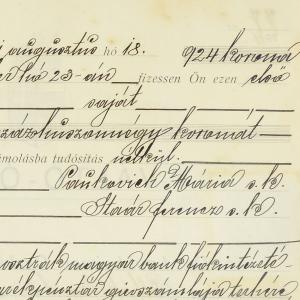 augusztus hó 18. 924 korona
hó 23-án fizessen Ön ezen első
saját
százhuszonnégy koronát
ámolásba tudósítás nélkül.
Paukovich Mária s. k.
Staár ferencz s. k.
osztrák magyar bank fiókintézeté-